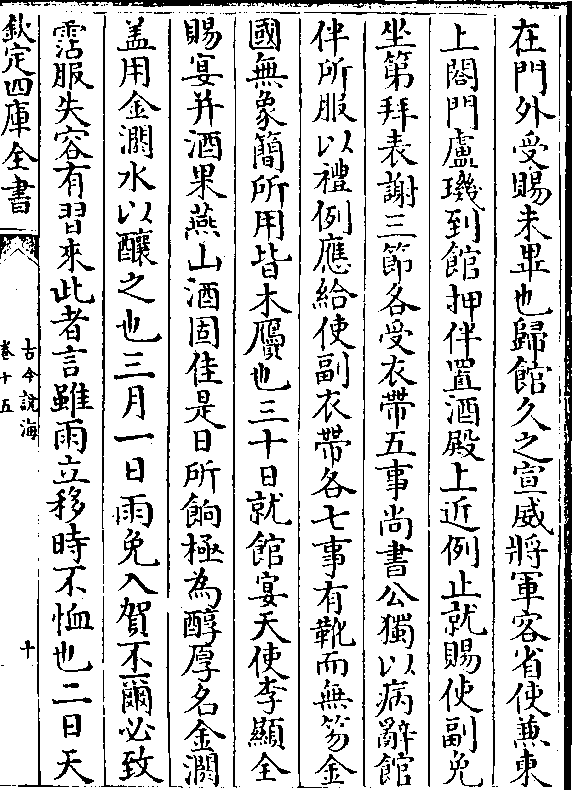 在門外受賜未畢也歸館久之宣威將軍客省使兼東
上閤門盧璣到館押伴置酒殿上近例止就賜使副免
坐第拜表謝三節各受衣帶五事尚書公獨以病辭館
伴所服以禮例應給使副衣帶各七事有靴而無笏金
國無象簡所用皆木贗也三十日就館宴天使李顯全
賜宴并酒果燕山酒固佳是日所餉極為醇厚名金瀾
盖用金瀾水以釀之也三月一日雨免入賀不爾必致
霑服失容有習來此者言雖雨立移時不恤也二日天
欽定四庫全書
古今說海
卷十五
十